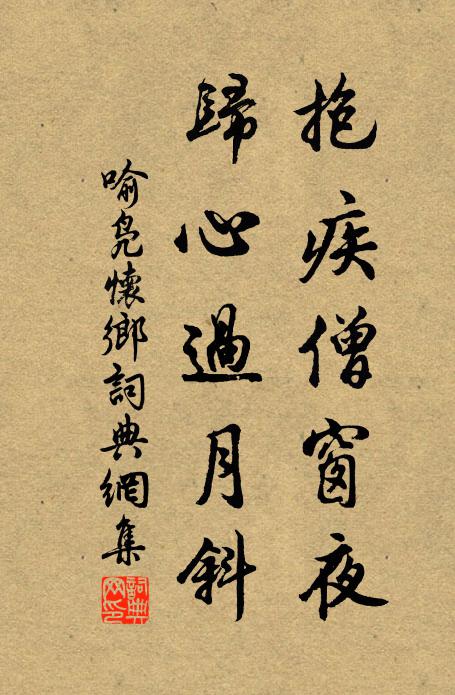 抱疾僧窗夜
歸心過月斜
喻凫懷鄉詞典網集
詞典网印